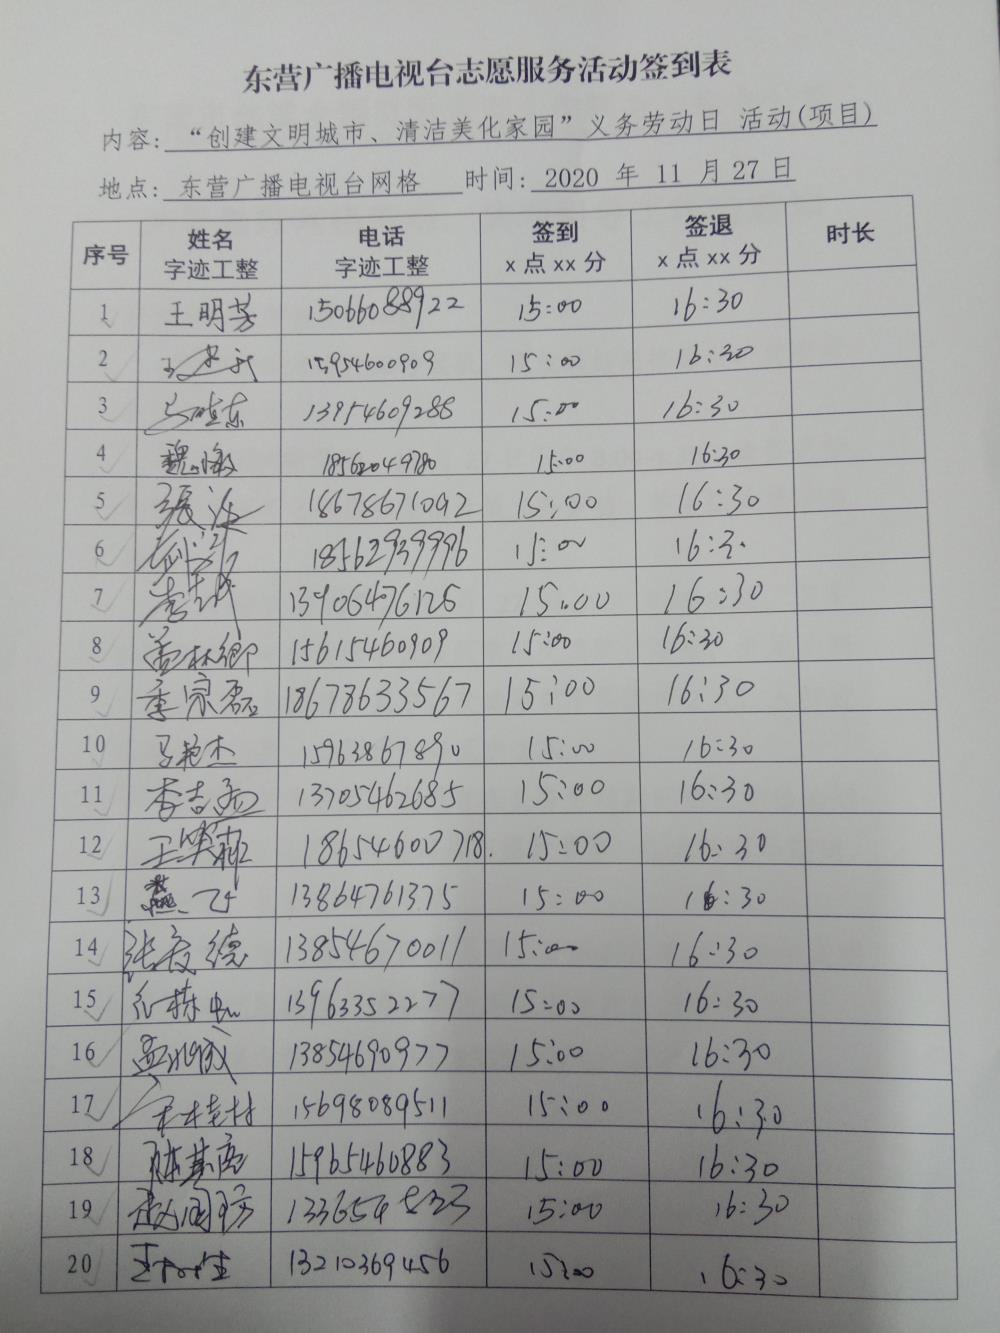 东营广播电视台志愿服务活动签到表
内容: “创建文明城市、清洁美化家园”义务劳动日 活动(项目)
地点: 东营广播电视台网格 时间: 2020 年 11 月 27 日
序号 姓名 字迹工整 电话 字迹工整 签到 x 点 xx 分 签退 x 点 xx 分 时长
1 王明芳 15066088922 15:00 16:30
2 15954600909 15:00 16:30
3 马晓东 13954609288 15:00 16:30
4 魏 18562049780 15:00 16:30
5 张 18678671092 15:00 16:30
6 18562939996 15:00 16:30
7 李 13906476126 15:00 16:30
8 盖林卿 15615460909 15:00 16:30
9 季宗磊 18678633567 15:00 16:30
10 马艳杰 15963867890 15:00 16:30
11 李吉 13705462685 15:00 16:30
12 王 18654600718. 15:00 16:30
13 燕飞 13864761375 15:00 16:30
14 张 德 13854670011 15:00 16:30
15 13963352277 15:00 16:30
16 孟 13854690977 15:00 16:30
17 15698089511 15:00 16:30
18 陈基 15965460883 15:00 16:30
19 赵国防 15:00 16:30
20 13210369456 15:00 16:30